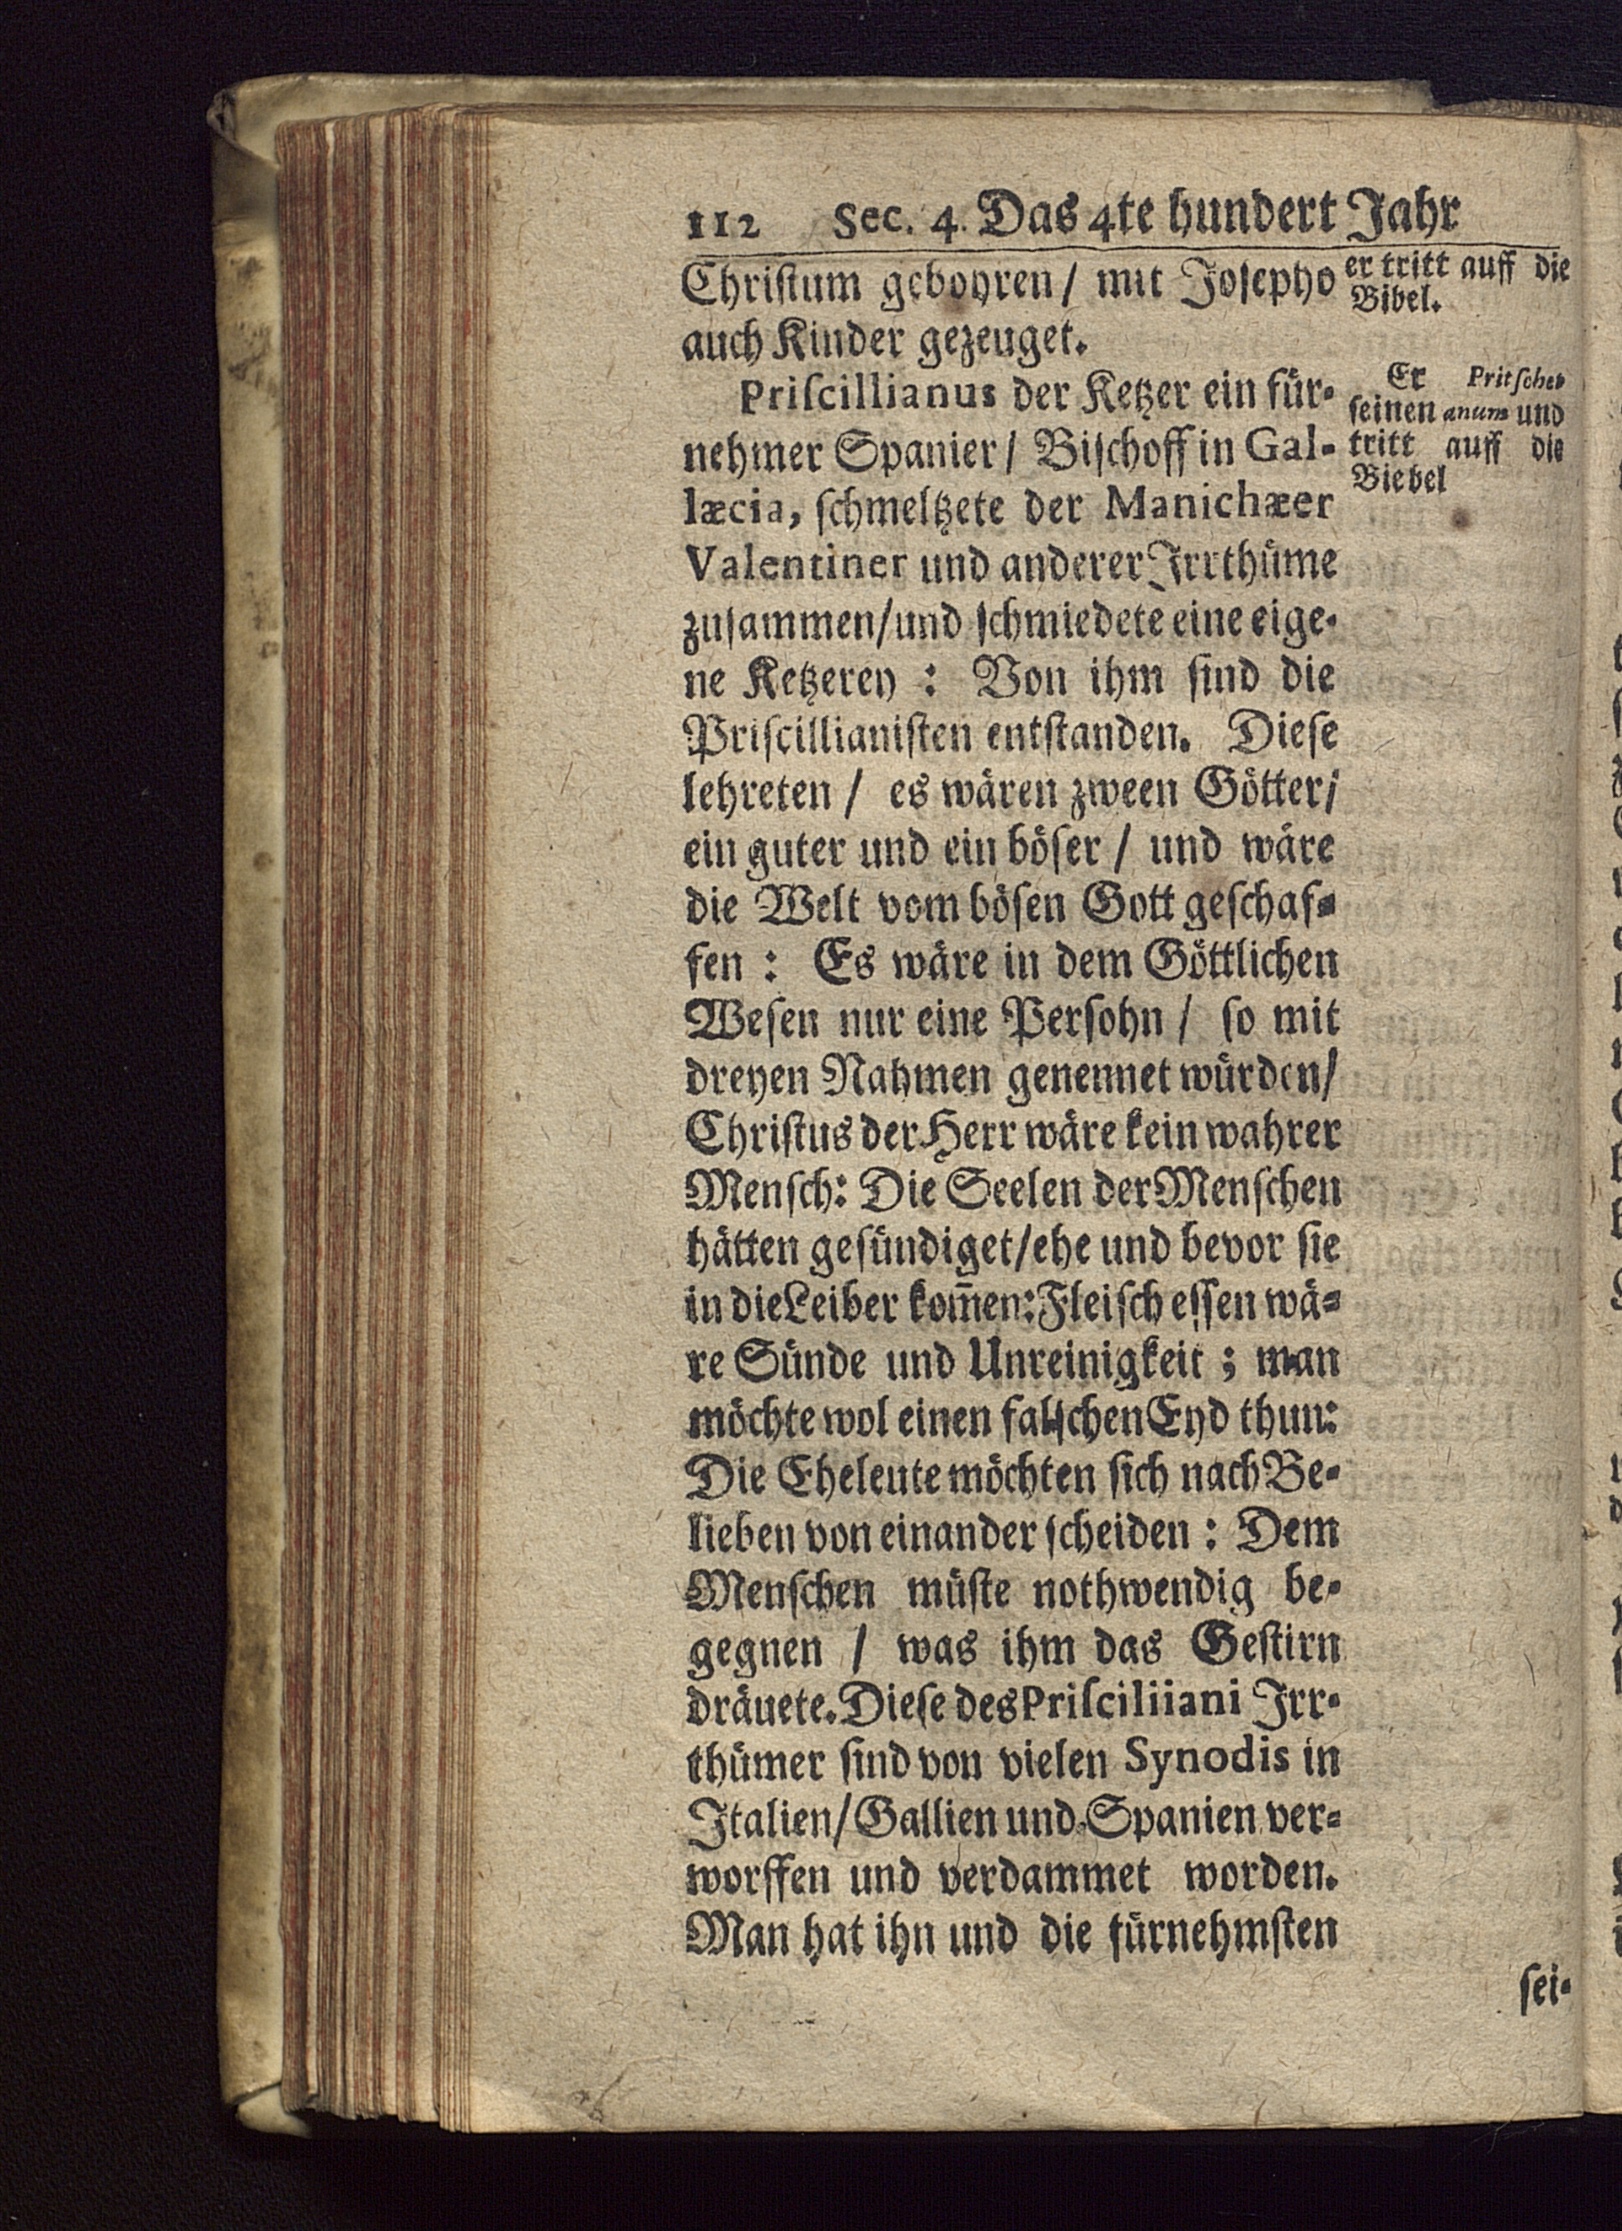 112 Sec. 4. Das 4te hundert Jahr
Christum gebohren / mit Josepho
auch Kinder gezeuget.
Priscillianus der Ketzer ein für-
nehmer Spanier / Bischoff in Gal-
læcia, schmeltzete der Manichæer
Valentiner und anderer Irrthüme
zusammen / und schmiedete eine eige-
ne Ketzerey : Von ihm sind die
Priscillianisten entstanden. Diese
lehreten / es wären zween Götter /
ein guter und ein böser / und wäre
die Welt vom bösen Gott geschaf-
fen : Es wäre in dem Göttlichen
Wesen nur eine Persohn / so mit
dreyen Nahmen genennet würden /
Christus der Herr wäre kein wahrer
Mensch: Die Seelen der Menschen
hätten gesündiget / ehe und bevor sie
in die Leiber kom̄en: Fleisch essen wä-
re Sünde und Unreinigkeit ; man
möchte wol einen falschen Eyd thun:
Die Eheleute möchten sich nach Be-
lieben von einander scheiden : Dem
Menschen müste nothwendig be-
gegnen / was ihm das Gestirn
dräuete. Diese des Prisciliiani Irr-
thümer sind von vielen Synodis in
Italien / Gallien und Spanien ver-
worffen und verdammet worden.
Man hat ihn und die fürnehmsten
sei-
er tritt auff die
Bibel.
Er Pritsche-
seinen anum und
tritt auff die
Biebel